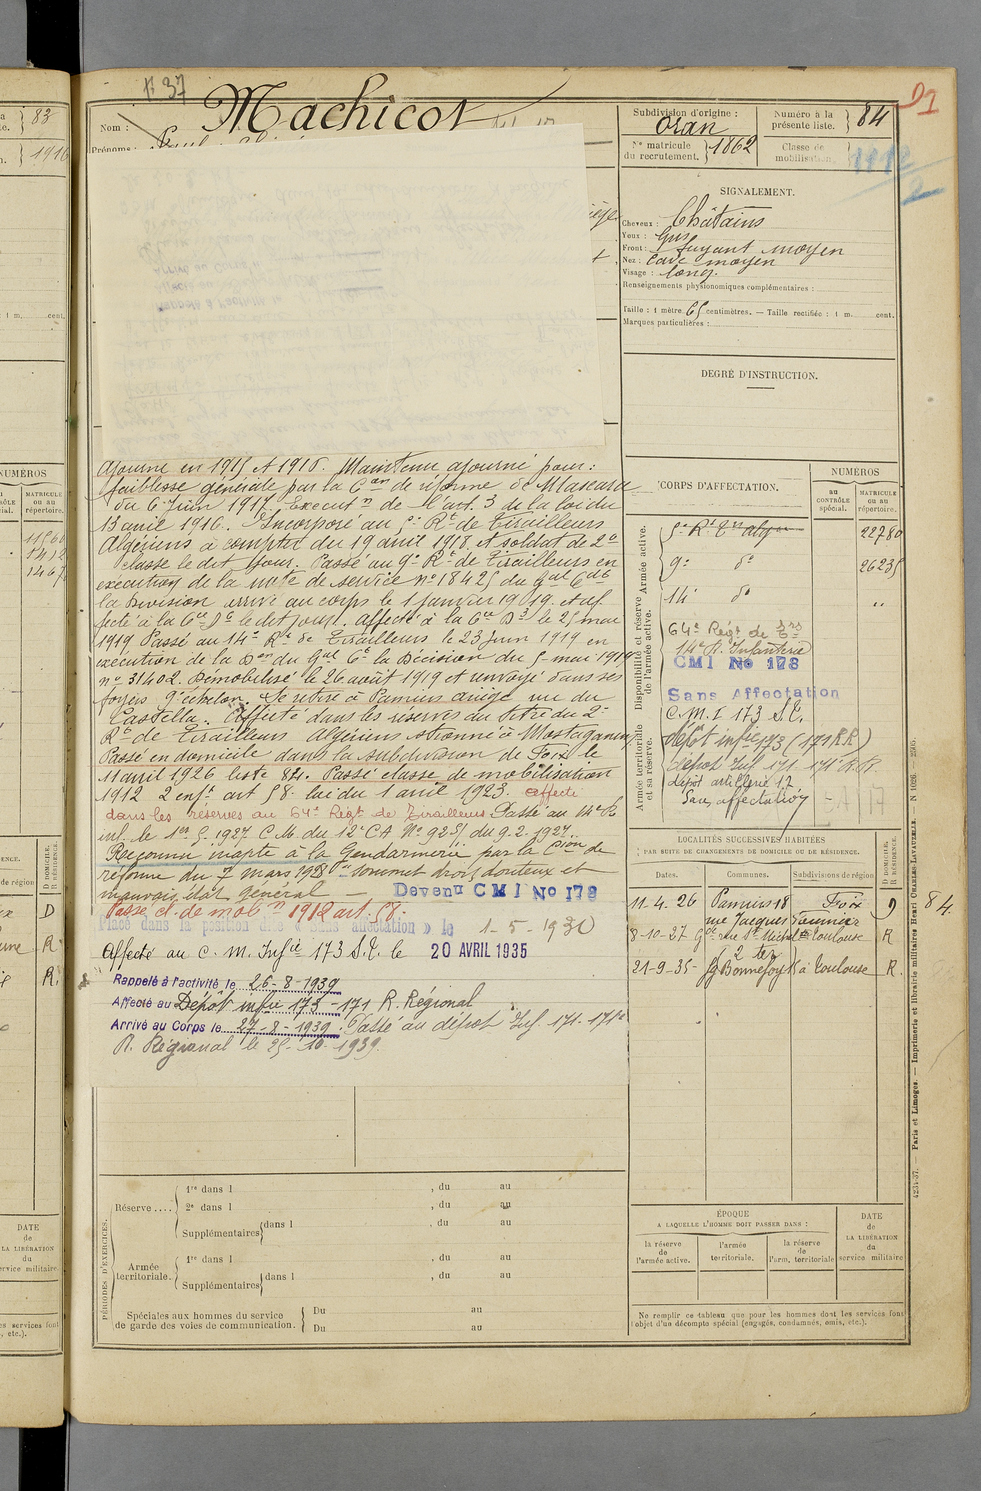 N° 37
Nom : Machicot
Prénoms :
Subdivision d'origine :
Oran
Numéro à la présente liste.
84
N° matricule du recrutement.
1862
Classe de mobilisation.
1912/2
D1
SIGNALEMENT.
Cheveux : Châtains
Yeux : Gris
Front : fuyant moyen
Nez : cave moyen
Visage : long.
Renseignements physionomiques complémentaires :
Taille : 1 mètre 65 centimètres. — Taille rectifiée : 1 m. cent.
Marques particulières :
DEGRÉ D'INSTRUCTION.
Ajourné en 1915 et 1916. Maintenu ajourné pour :
faiblesse générale par la Con de réforme de Mascara
du 6 Juin 1917. Executn de l'art. 3 de la loi du
13 avril 1916. Incorporé au 5e Rt de Tirailleurs
Algériens à compter du 19 avril 1918 et soldat de 2e
classe le dit jour. Passé au 9e Rt de Tirailleurs en
exécution de la note de service n° 18425 du Gal Cdt
la Division arrivé au corps le 1 janvier 1919. et af
fecté à la 6e Cie le dit jour. Affecté à la le 25 mai
1919 Passé au 14e Rt de Tirailleurs le 23 Juin 1919 en
exécution de la Don du Gal Ct la Division du 5 mai 1919
n° 31402. Démobilisé le 26 août 1919 et renvoyé dans ses
foyers 9e échelon. Se retire à Pamiers ariège rue du
Castella. Affecté dans les réserves au titre du 2e
Rt de Tirailleurs Algériens stationné à Mostaganem
Passé en domicile dans la subdivision de Foix le
11 avril 1926 liste 84. Passé classe de mobilisation
1912 2 enft art 58. loi du 1 avril 1923. affecté
dans les réserves au 64e Régt de Tirailleurs Passé au 14e R.
inf. le 1er 5. 1927 C.M. du 12e CA N° 925/ du 9.2.1927.
Reconnu inapte à la Gendarmerie par la Cion de
réforme du 7 mars 1928 "sommet droit douteux et
mauvais état général
Devenu CMI No 178
Passé cl. de mobon 1912 art. 58.
Placé dans la position dite « Sans affectation » le 1-5-1930
Affecté au C. M. Infie 173 S.E. le 20 AVRIL 1935
Rappelé à l'activité le 26-8-1939
Affecté au Dépôt infie 173-171 R. Régional
Arrivé au Corps le 27-8-1939. Passé au dépôt Inf. 171-171e
R. Régional le 25-10-1939.
CORPS D'AFFECTATION.
NUMÉROS
au CONTRÔLE spécial.
MATRICULE ou au répertoire.
Armée active.
Disponibilité et réserve de l'armée active.
Armée territoriale et sa réserve.
5e Rt Trs alg. 22780
9e do 26235
14e do "
64e Régt de Trs
14e R. Infanterie
CMI No 178
Sans Affectation
C.M.I 173 S.E.
dépôt infie 173 (171 RR)
dépôt Inf 171. 171e R.R.
dépôt artillerie 17
Sans affectation
LOCALITÉS SUCCESSIVES HABITÉES
PAR SUITE DE CHANGEMENTS DE DOMICILE OU DE RÉSIDENCE.
Dates.
Communes.
Subdivisions de région
D DOMICILE. R RÉSIDENCE.
11.4.26 Pamiers 18 Foix D 84.
rue Jacques Fournier
8-10-27 Gde rue St Michel Toulouse R
2 ter
21-9-35- fg Bonnefoy à Toulouse R.
ÉPOQUE
A LAQUELLE L'HOMME DOIT PASSER DANS :
la réserve de l'armée active.
l'armée territoriale.
la réserve de l'arm. territoriale
DATE de LA LIBÉRATION du service militaire
Ne remplir ce tableau que pour les hommes dont les services font
l'objet d'un décompte spécial (engagés, condamnés, omis, etc.).
PÉRIODES D'EXERCICES.
Réserve ....
1re dans l , du au
2e dans l , du au
Supplémentaires dans l , du au
Armée territoriale.
1re dans l , du au
Supplémentaires dans l , du au
Spéciales aux hommes du service
de garde des voies de communication.
Du au
Du au
4231-37. — Paris et Limoges. — Imprimerie et librairie militaires Henri CHARLES-LAVAUZELLE.
83
1916
cent.
NUMÉROS
MATRICULE ou au répertoire.
D DOMICILE. R RÉSIDENCE.
de région
D
R
R.
DATE
de
LA LIBÉRATION
du
service militaire